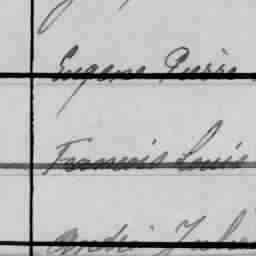 Eugene Pierre
Francois Louis
André Jules